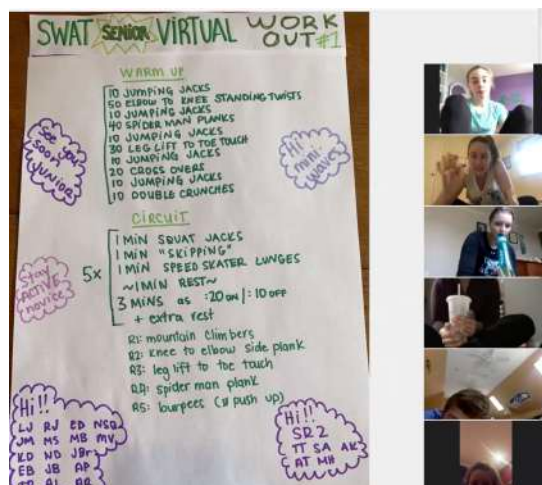 SWAT SENIOR VIRTUAL WORK
OUT #1
WARM UP
10 JUMPING JACKS
50 ELBOW TO KNEE STANDING TWISTS
10 JUMPING JACKS
40 SPIDER MAN PLANKS
10 JUMPING JACKS
30 LEG LIFT TO TOE TOUCH
10 JUMPING JACKS
20 CROSS OVERS
10 JUMPING JACKS
10 DOUBLE CRUNCHES
See you
soon
juniors
Hi
mini-
waves
CIRCUIT
5x
1 MIN SQUAT JACKS
1 MIN "SKIPPING"
1 MIN SPEED SKATER LUNGES
~1 MIN REST~
3 MINS as :20 ON/:10 OFF
+ extra rest
Stay
ACTIVE
novice
R1: mountain climbers
R2: knee to elbow side plank
R3: leg lift to toe touch
R4: spider man plank
R5: burpees (w push up)
Hi!!
LJ RJ ED NSD
JM MS MB MV
KD ND JBr
EB JB AP
Hi!!
SR2
TT SA AK
AT MH